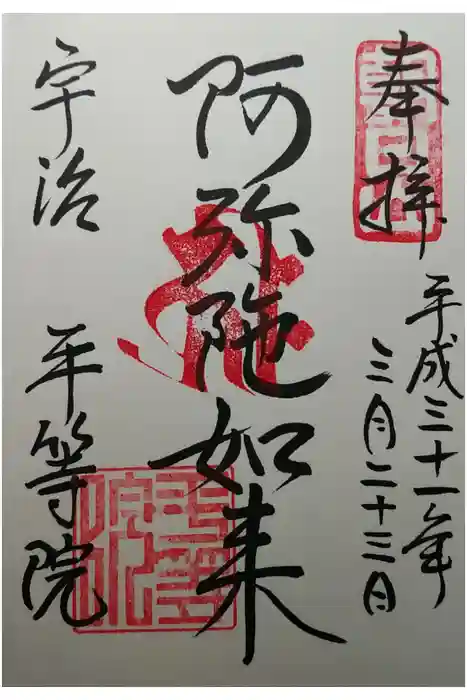 奉拝
平成三十一年
三月二十三日
阿弥陀如来
宇治
平等院